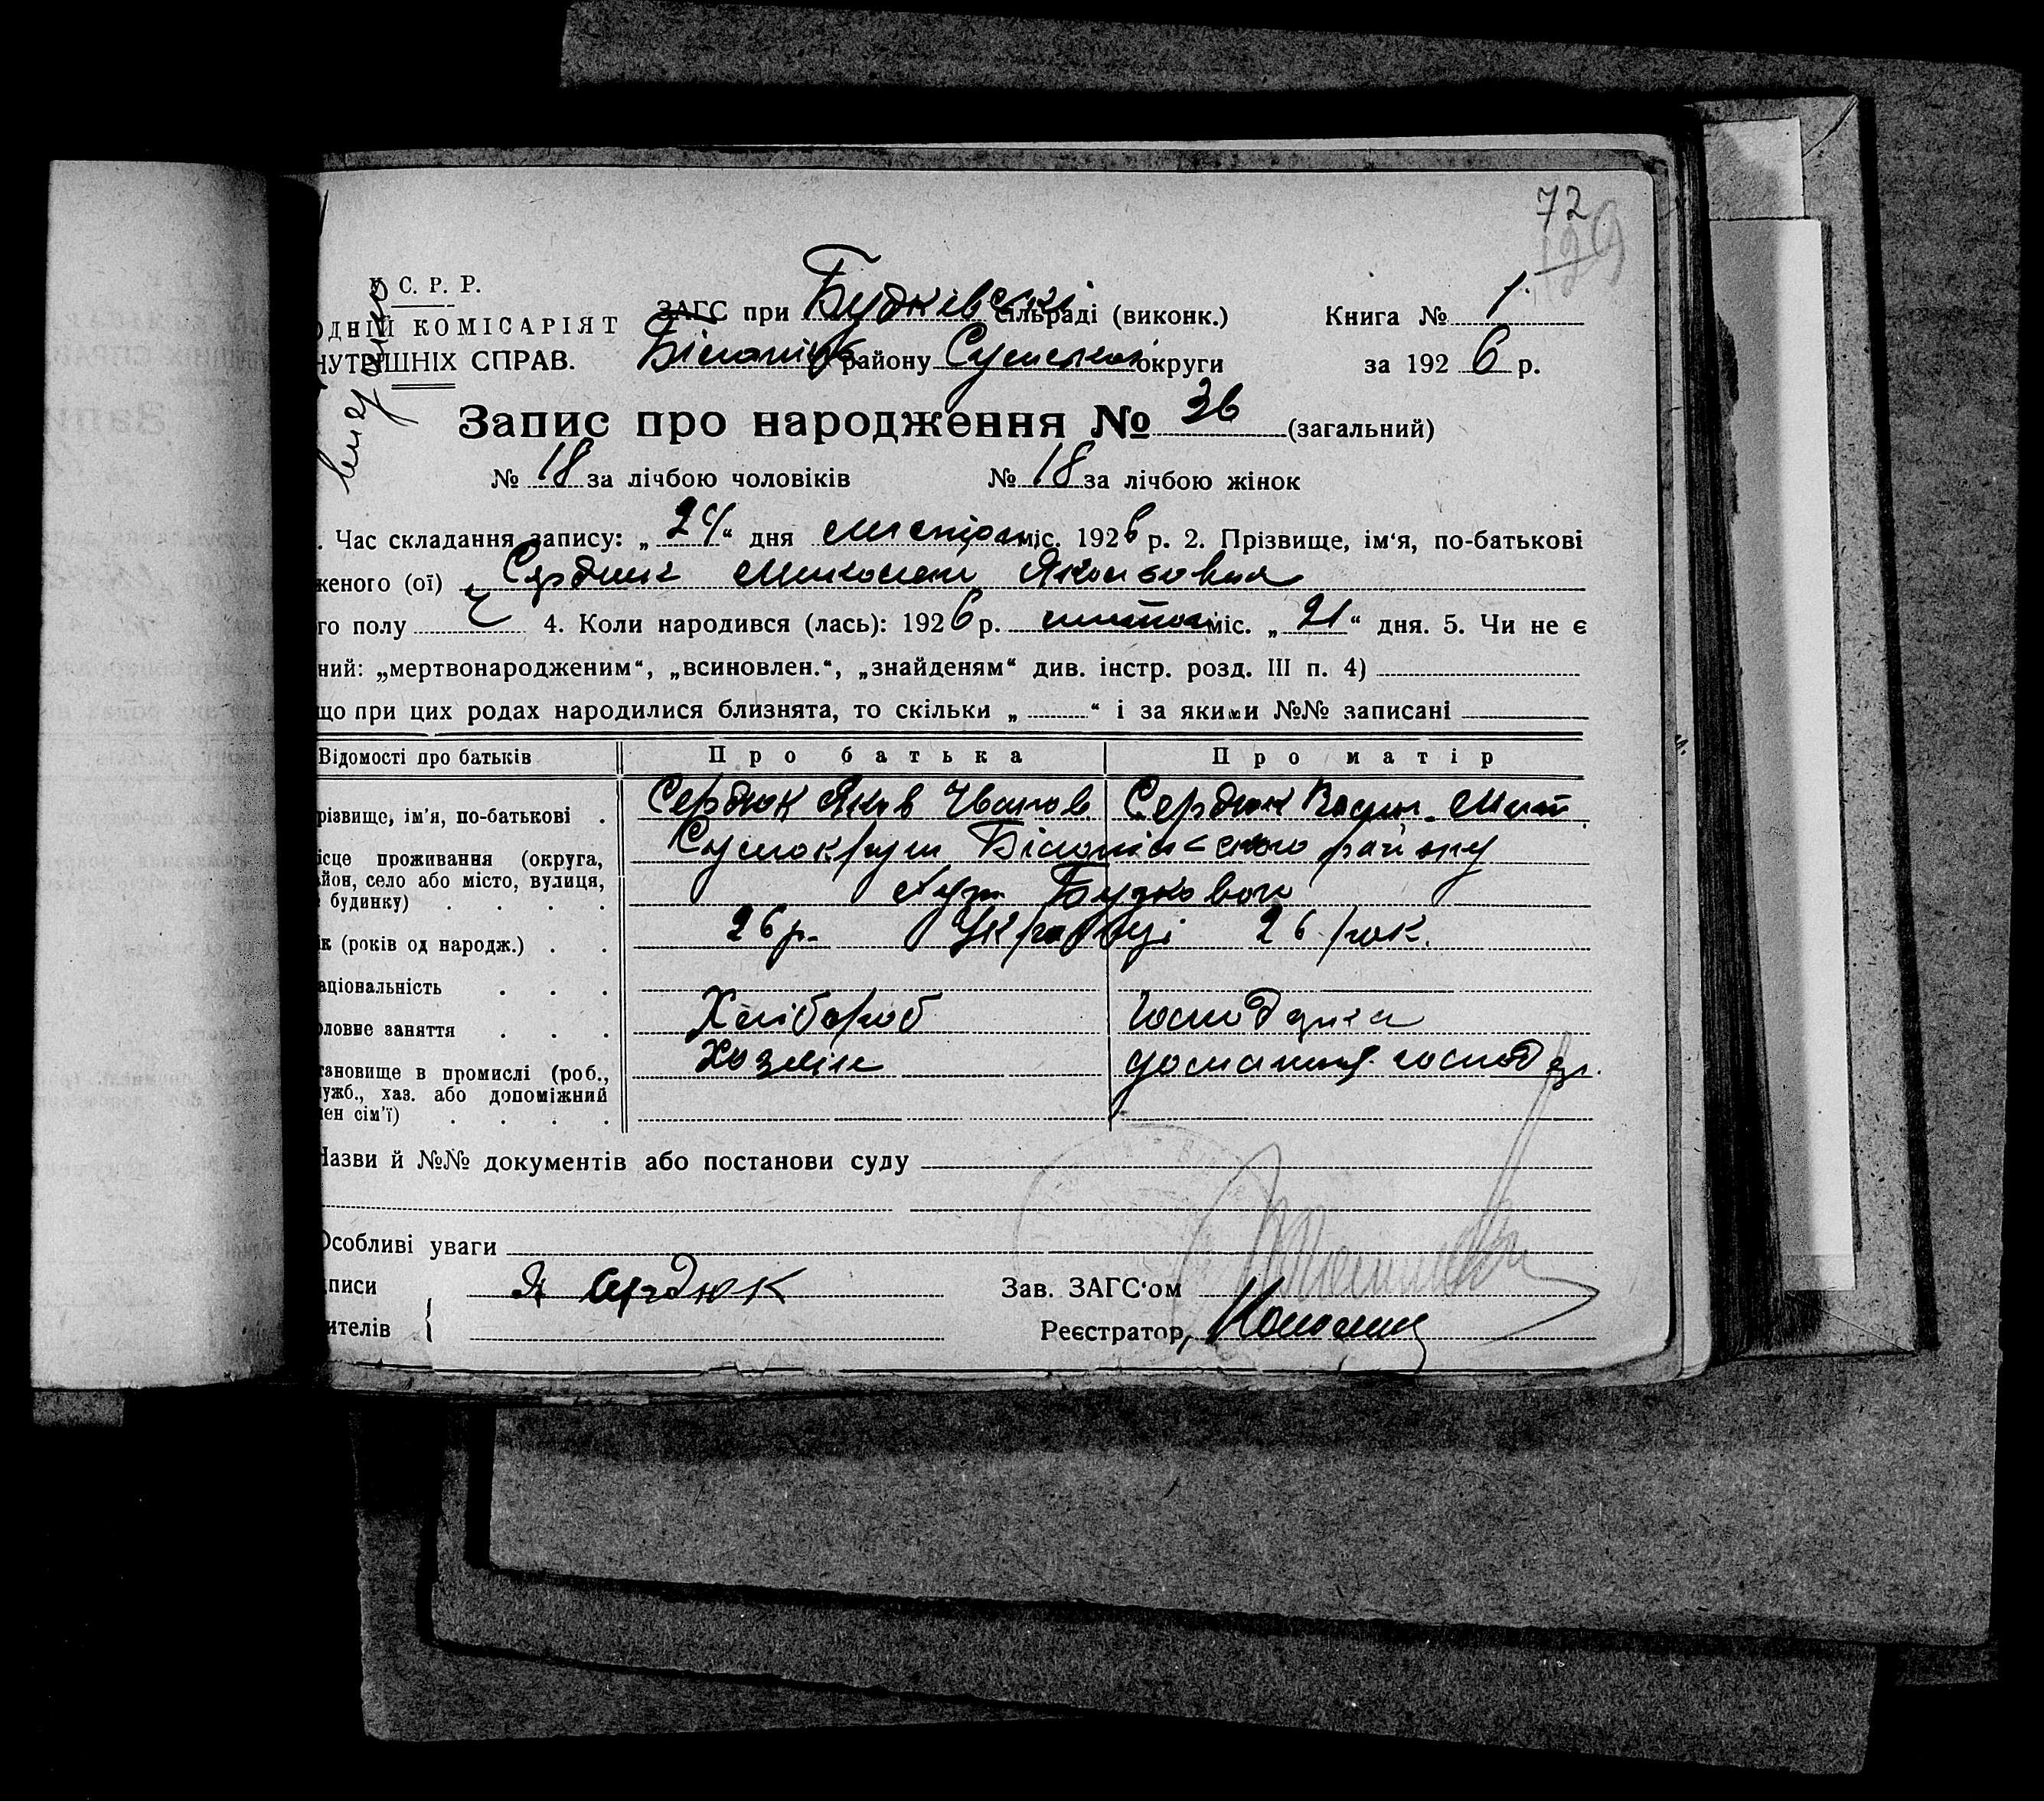 72
129
У. С. Р. Р.
ОДНІЙ КОМІСАРІЯТ
НУТРІШНІХ СПРАВ.
ЗАГС при Будківські сільраді (виконк.)
Білопіл району Сумської округи
Книга № 1.
за 1926 р.
Запис про народження № 36 (загальний)
№ 18 за лічбою чоловіків № 18 за лічбою жінок
. Час складання запису: „24“ дня міс. 1926 р. 2. Прізвище, ім‘я, по-батькові
женого (ої) Сердюк
го полу Ч 4. Коли народився (лась): 1926 р. міс. „21“ дня. 5. Чи не є
ний: „мертвонародженим“, „всиновлен.“, „знайденям“ див. інстр. розд. III п. 4)
що при цих родах народилися близнята, то скільки „ “ і за якими №№ записані
Відомості про батьків Про батька Про матір
різвище, ім'я, по-батькові . Сердюк Яків Іванов. Сердюк Васил. Мит.
ісце проживання (округа, Сумокруги Білопільського району
йон, село або місто, вулиця,
будинку) . . . . Хут. Будкового
ік (років од народж.) . . 26 р. Українці 26 рок.
аціональність . . .
оловне заняття . . . Хлібороб Господиня
тановище в промислі (роб., Хозяїн домашнє господ.
ужб., хаз. або допоміжний
лен сім'ї) . . . .
Назви й №№ документів або постанови суду
Особливі уваги
писи Я Сердюк Зав. ЗАГС‘ом
ителів Реєстратор,